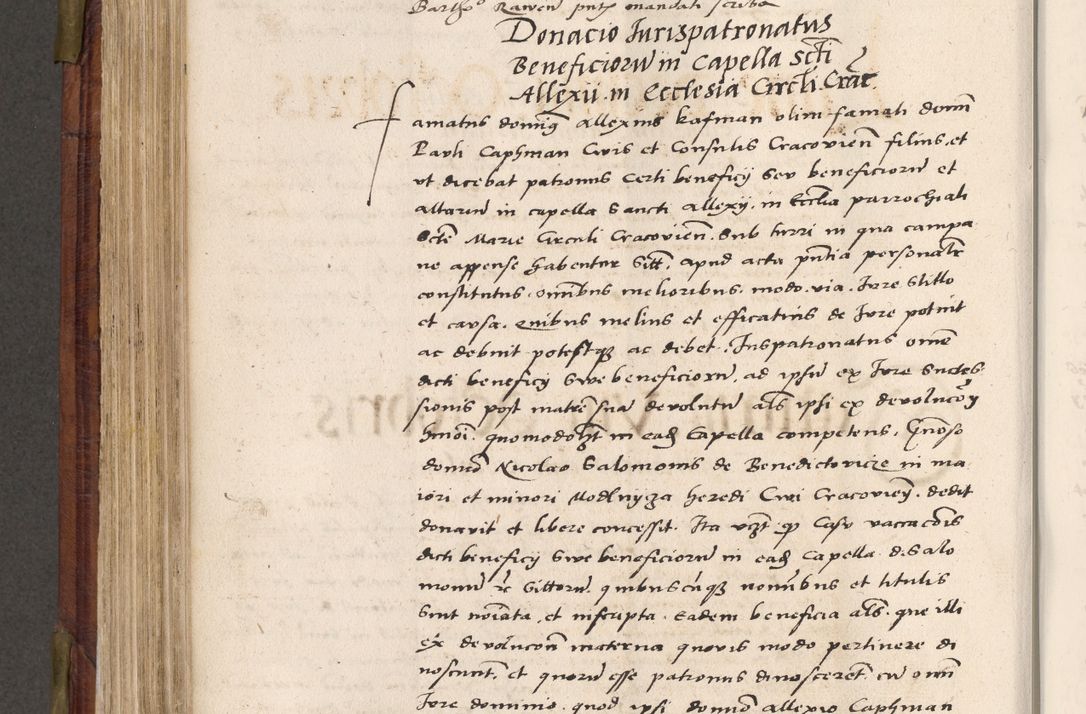 Bartho Rawen pntz mandati scriba
Donacio Iurispatronatus
Beneficiorum in Capella Scti
Allexii in Ecclesia Circli Crac
Famatus dominus Allexius Kafman olim famati domini
Pauli Caphman Civis et Consulis Cracovien filius, et
ut dicebat patronus Certi beneficij Seu beneficiorum et
altarium in capella Sancti Allexij, in Ecclia parrochiali
Scte Marie Circuli Cracovien. Sub turri in qua campa
ne appense habentur Sitt, apud acta pntia personalr
constitutus, omnibus melioribus, modo, via, Iure Stillo
et causa, quibus melius et efficatius de Iure potuit
ac debuit potestque ac debet, Iuspatronatus omne
dicti beneficij Sive beneficiorum, ad ipsum ex Iure Succes
sionis post matrem suam devolutum als ipsi ex devolucon
hmoi quomodolzt in eadem Capella competens,
domino Nicolao Salomonis de Benedictovicze in ma
iori et minori Modlnyza heredi Civi Cracovien, dedit
donavit et libere concessit. Ita vzt quod Casu vaccacionis
dicti beneficij Sive beneficiorum in eadem Capella, de Salo
monum etc Sittorum, quibuscunque nominibus et titulis
Sint noiata, et inscripta, Eadem beneficia als, que illi
ex devolucon materna quovis modo pertinere di
noscunt, et quorum esse patronus dinosceret, cum omni
Iure dominio, quod ipsi domino Allexio Caphman